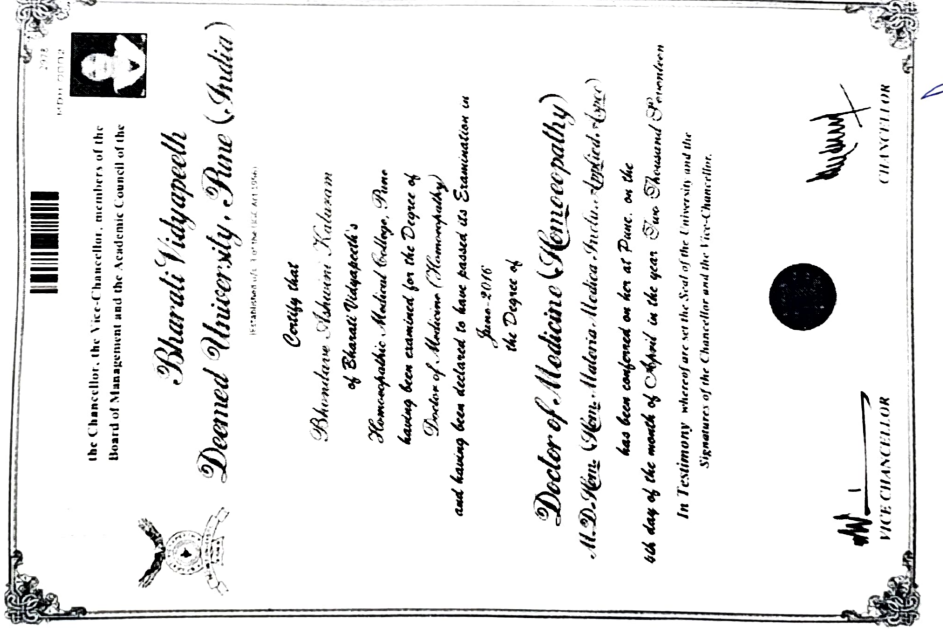 2028
the Chancellor, the Vice-Chancellor, members of the
Board of Management and the Academic Council of the
Bharati Vidyapeeth
Deemed University, Pune (India)
Certify that
Bhondave Ashwini Kaluram
of Bharati Vidyapeeth's
Homoeopathic Medical College, Pune
having been examined for the Degree of
Doctor of Medicine (Homoeopathy)
and having been declared to have passed its Examination in
June-2016
the Degree of
Doctor of Medicine (Homoeopathy)
M.D.Hom. (Hom. Materia Medica Inclu. Applied Aspec)
has been conferred on her at Pune, on the
6th day of the month of April in the year Two Thousand Seventeen
In Testimony whereof are set the Seal of the University and the
Signatures of the Chancellor and the Vice-Chancellor.
VICE CHANCELLOR
CHANCELLOR